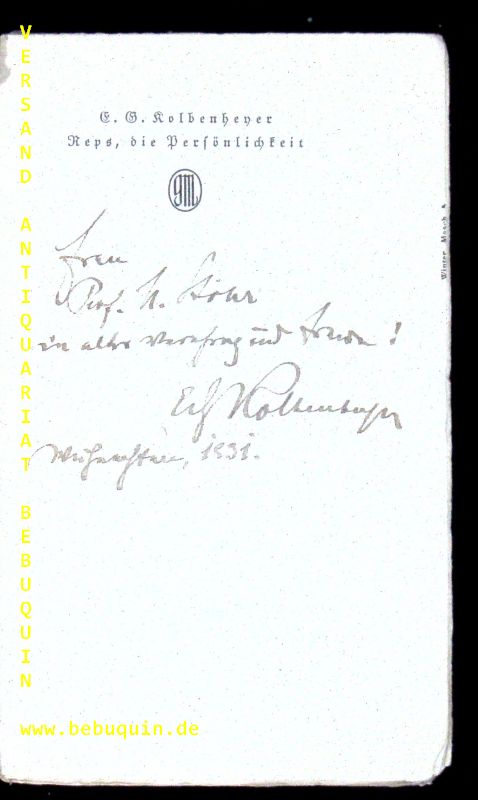 E. G. Kolbenheyer
Reps, die Persönlichkeit
gm
Frau
Prof. A. Stöhr
in alter Verehrung und Freude!
Erw Kolbenheyer
Weihnachten, 1931.
VERSAND ANTIQUARIAT BEBUQUIN
www.bebuquin.de